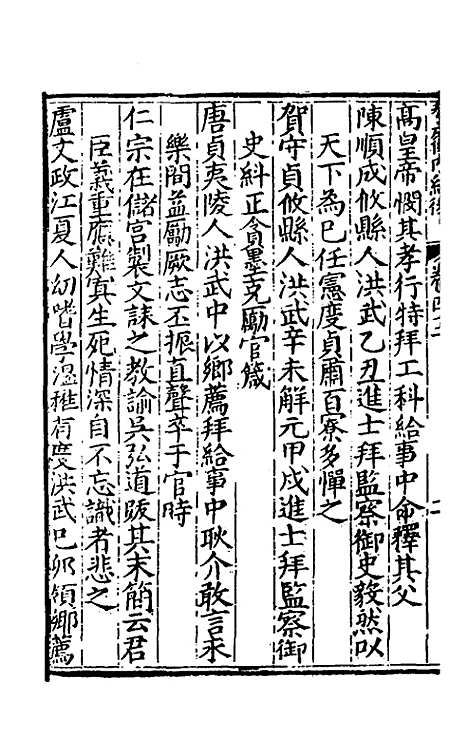 高皇帝憫其孝行特拜工科給事中命釋其父
陳順成攸縣人洪武乙丑進士拜監察御史毅然以
天下為巳任憲度貞肅百寮多憚之
賀守貞攸縣人洪武辛未解元甲戌進士拜監察御
史糾正貪墨克勵官箴
唐貞夷陵人洪武中以鄉薦拜給事中耿介敢言未
樂間益勵厥志丕振直聲卒于官時
仁宗在儲宮製文誄之教諭吳弘道跋其末簡云君
臣義重
真生死情深自不忘識者悲之
盧文政江夏人幼嗜學涅
有度洪武巳卯領鄉薦